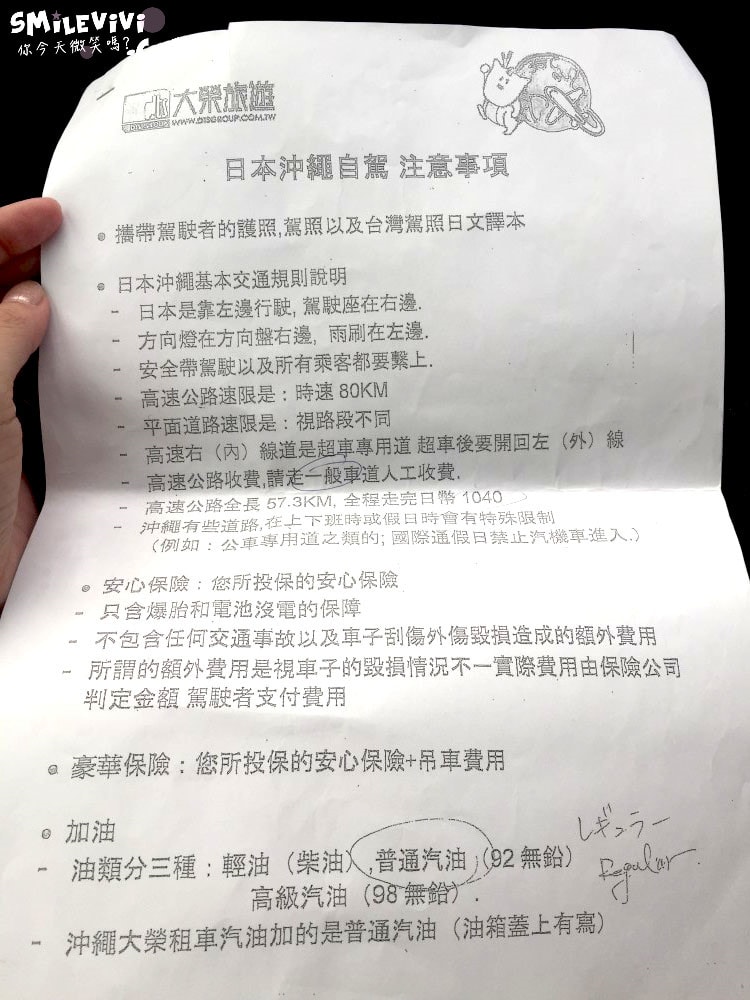 SMiLEViVi
你今天微笑嗎?
大榮旅遊
WWW.OTSGROUP.COM.TW
日本沖繩自駕 注意事項
• 攜帶駕駛者的護照,駕照以及台灣駕照日文譯本
• 日本沖繩基本交通規則說明
- 日本是靠左邊行駛, 駕駛座在右邊.
- 方向燈在方向盤右邊, 雨刷在左邊.
- 安全帶駕駛以及所有乘客都要繫上.
- 高速公路速限是：時速 80KM
- 平面道路速限是：視路段不同
- 高速右（內）線道是超車專用道 超車後要開回左（外）線
- 高速公路收費,請走一般車道人工收費.
- 高速公路全長 57.3KM, 全程走完日幣 1040
- 沖繩有些道路,在上下班時或假日時會有特殊限制
（例如：公車專用道之類的; 國際通假日禁止汽機車進入.）
• 安心保險：您所投保的安心保險
- 只含爆胎和電池沒電的保障
- 不包含任何交通事故以及車子刮傷外傷毀損造成的額外費用
- 所謂的額外費用是視車子的毀損情況不一實際費用由保險公司
判定金額 駕駛者支付費用
• 豪華保險：您所投保的安心保險+吊車費用
• 加油
- 油類分三種：輕油（柴油）,普通汽油（92 無鉛）
高級汽油（98 無鉛）.
レギュラー
Regular
- 沖繩大榮租車汽油加的是普通汽油（油箱蓋上有寫）